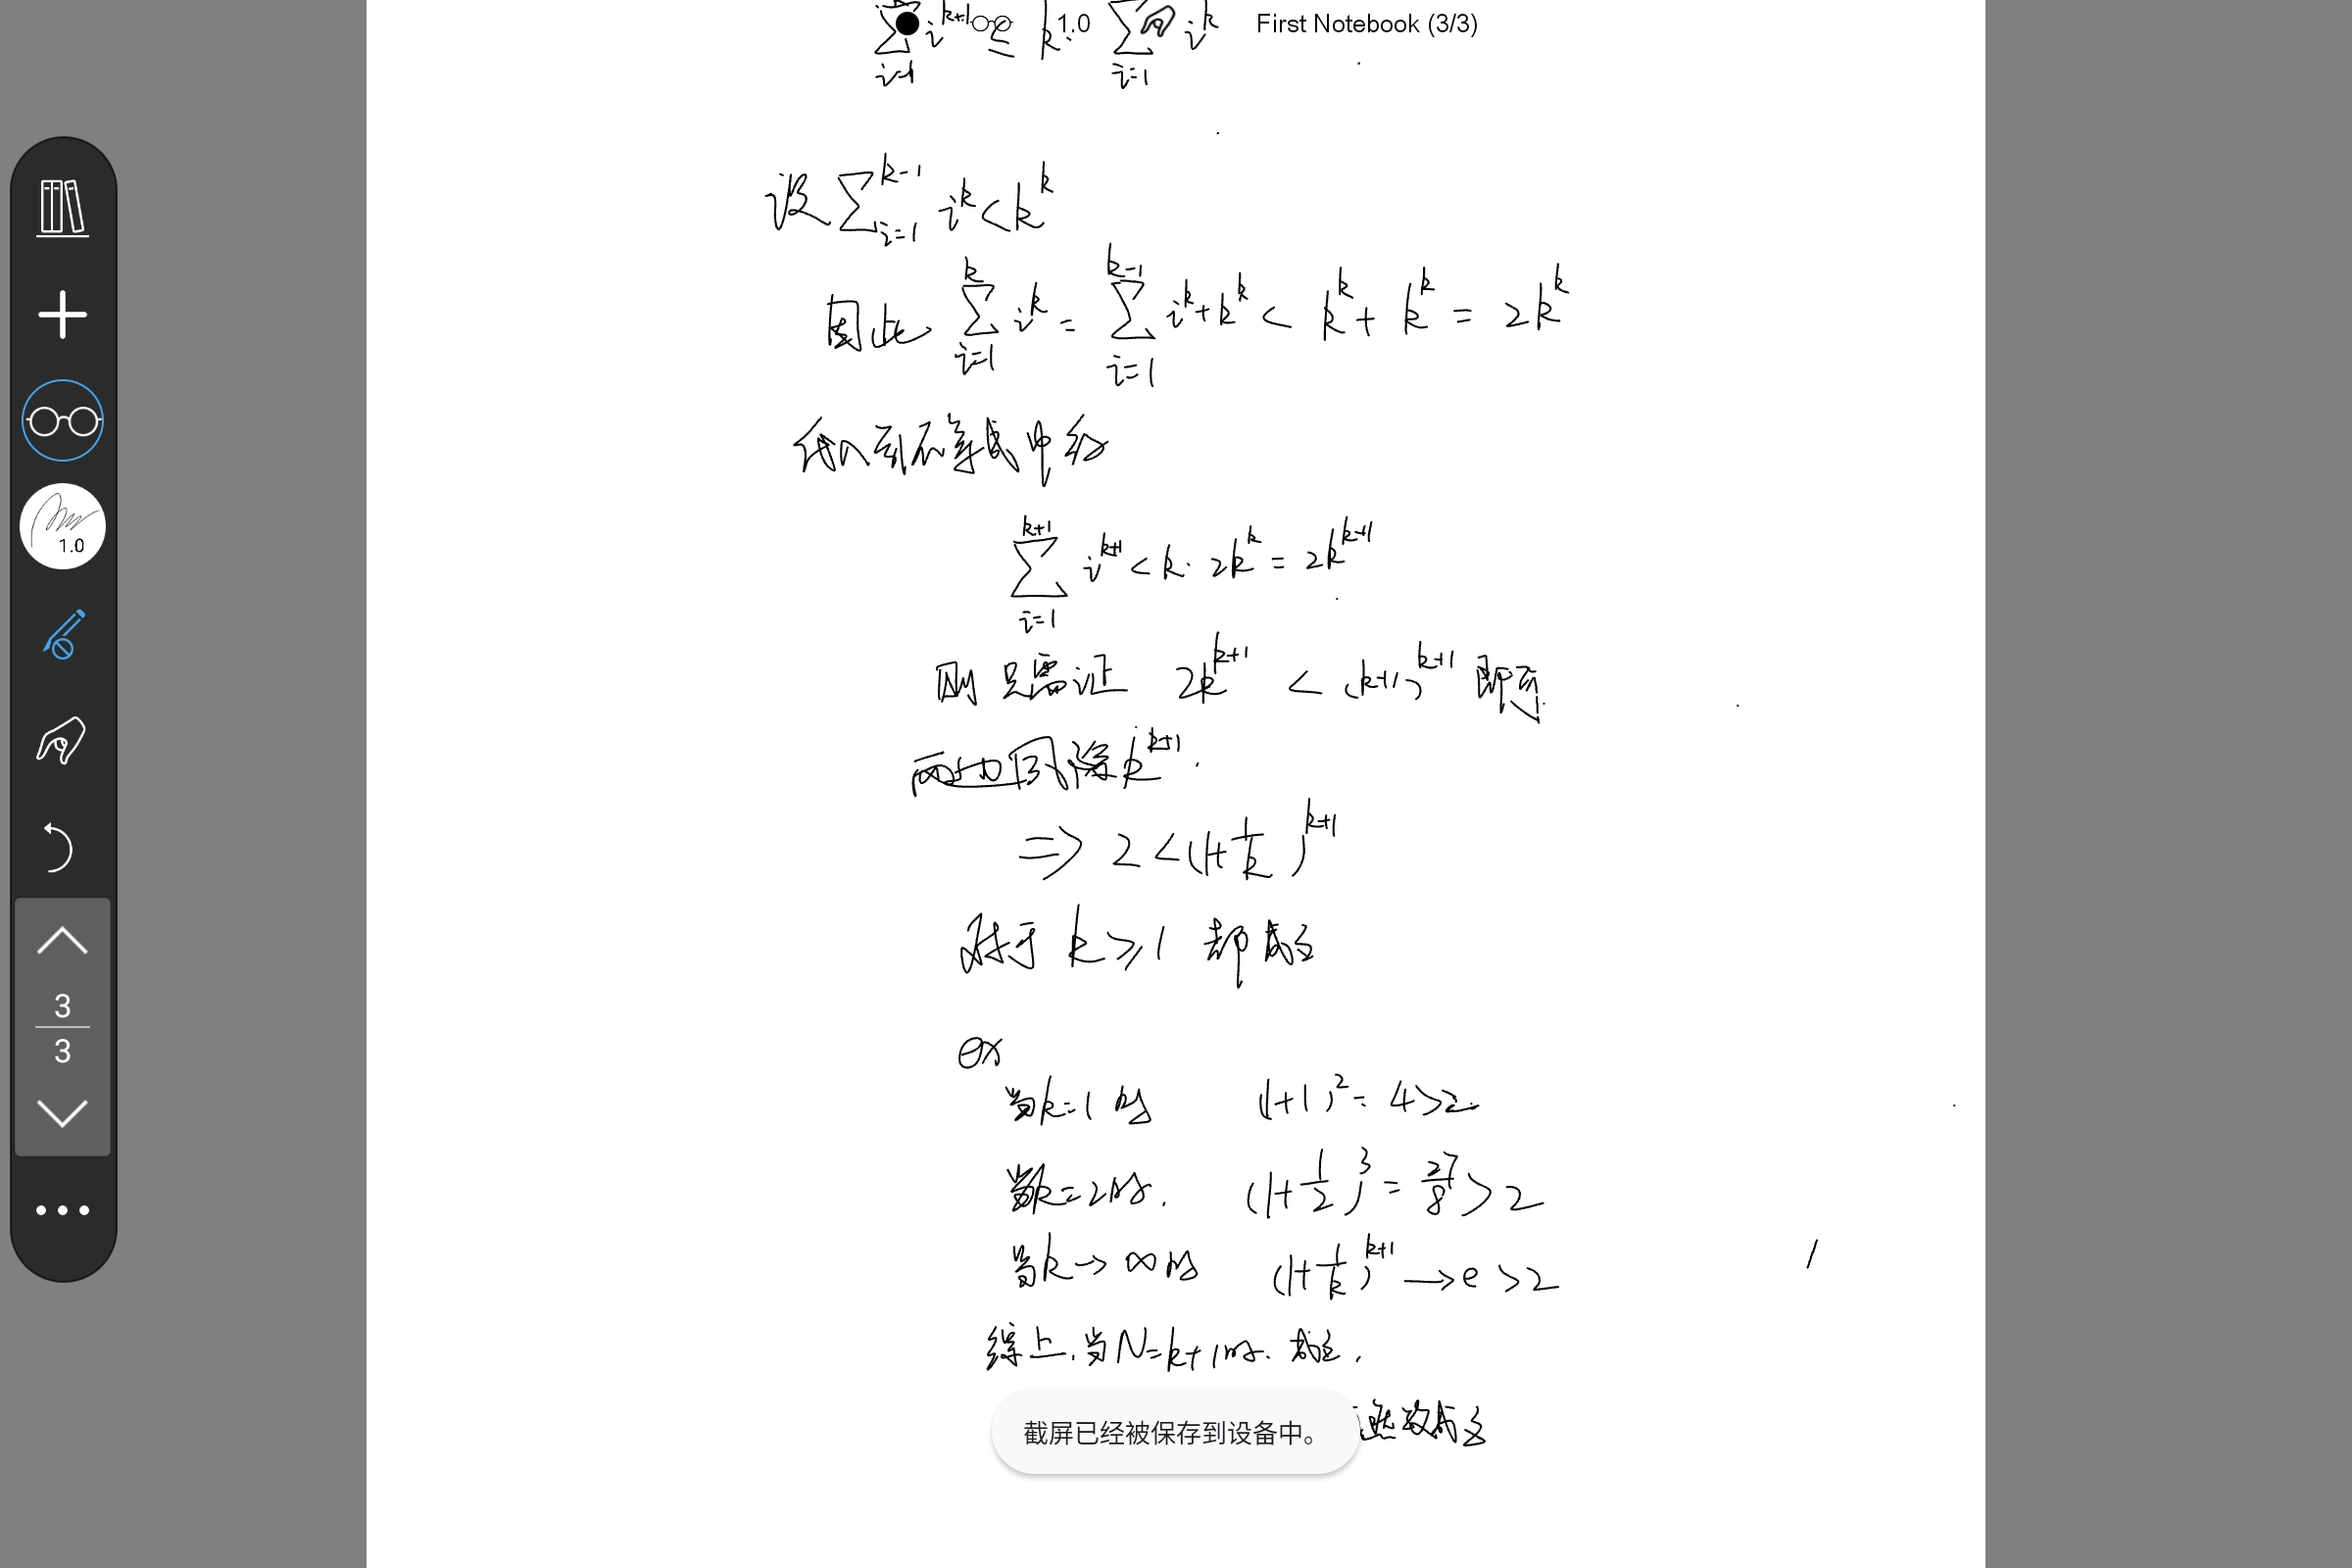 ∑_{i=1} i^{k+1} ≤ k · ∑_{i=1} i^k
1.0 First Notebook (3/3)
设 ∑_{i=1}^{k-1} i^k < k^k
因此 ∑_{i=1}^{k} i^k = ∑_{i=1}^{k-1} i^k + k^k < k^k + k^k = 2k^k
代入到不等式中 得
∑_{i=1}^{k+1} i^{k+1} < k · 2k^k = 2k^{k+1}
1.0
则 只需证 2k^{k+1} < (k+1)^{k+1} 即可
两边同除 k^{k+1}.
⇒ 2 < (1+1/k)^{k+1}
对于 k ≥ 1 都成立
ex
当k=1时 (1+1)^2 = 4 > 2
当k=2时. (1+1/2)^3 = 27/8 > 2
当k→∞时 (1+1/k)^{k+1} → e > 2
3
3
综上, 当N=k+1时. 成立.
成立
截屏已经被保存到设备中。